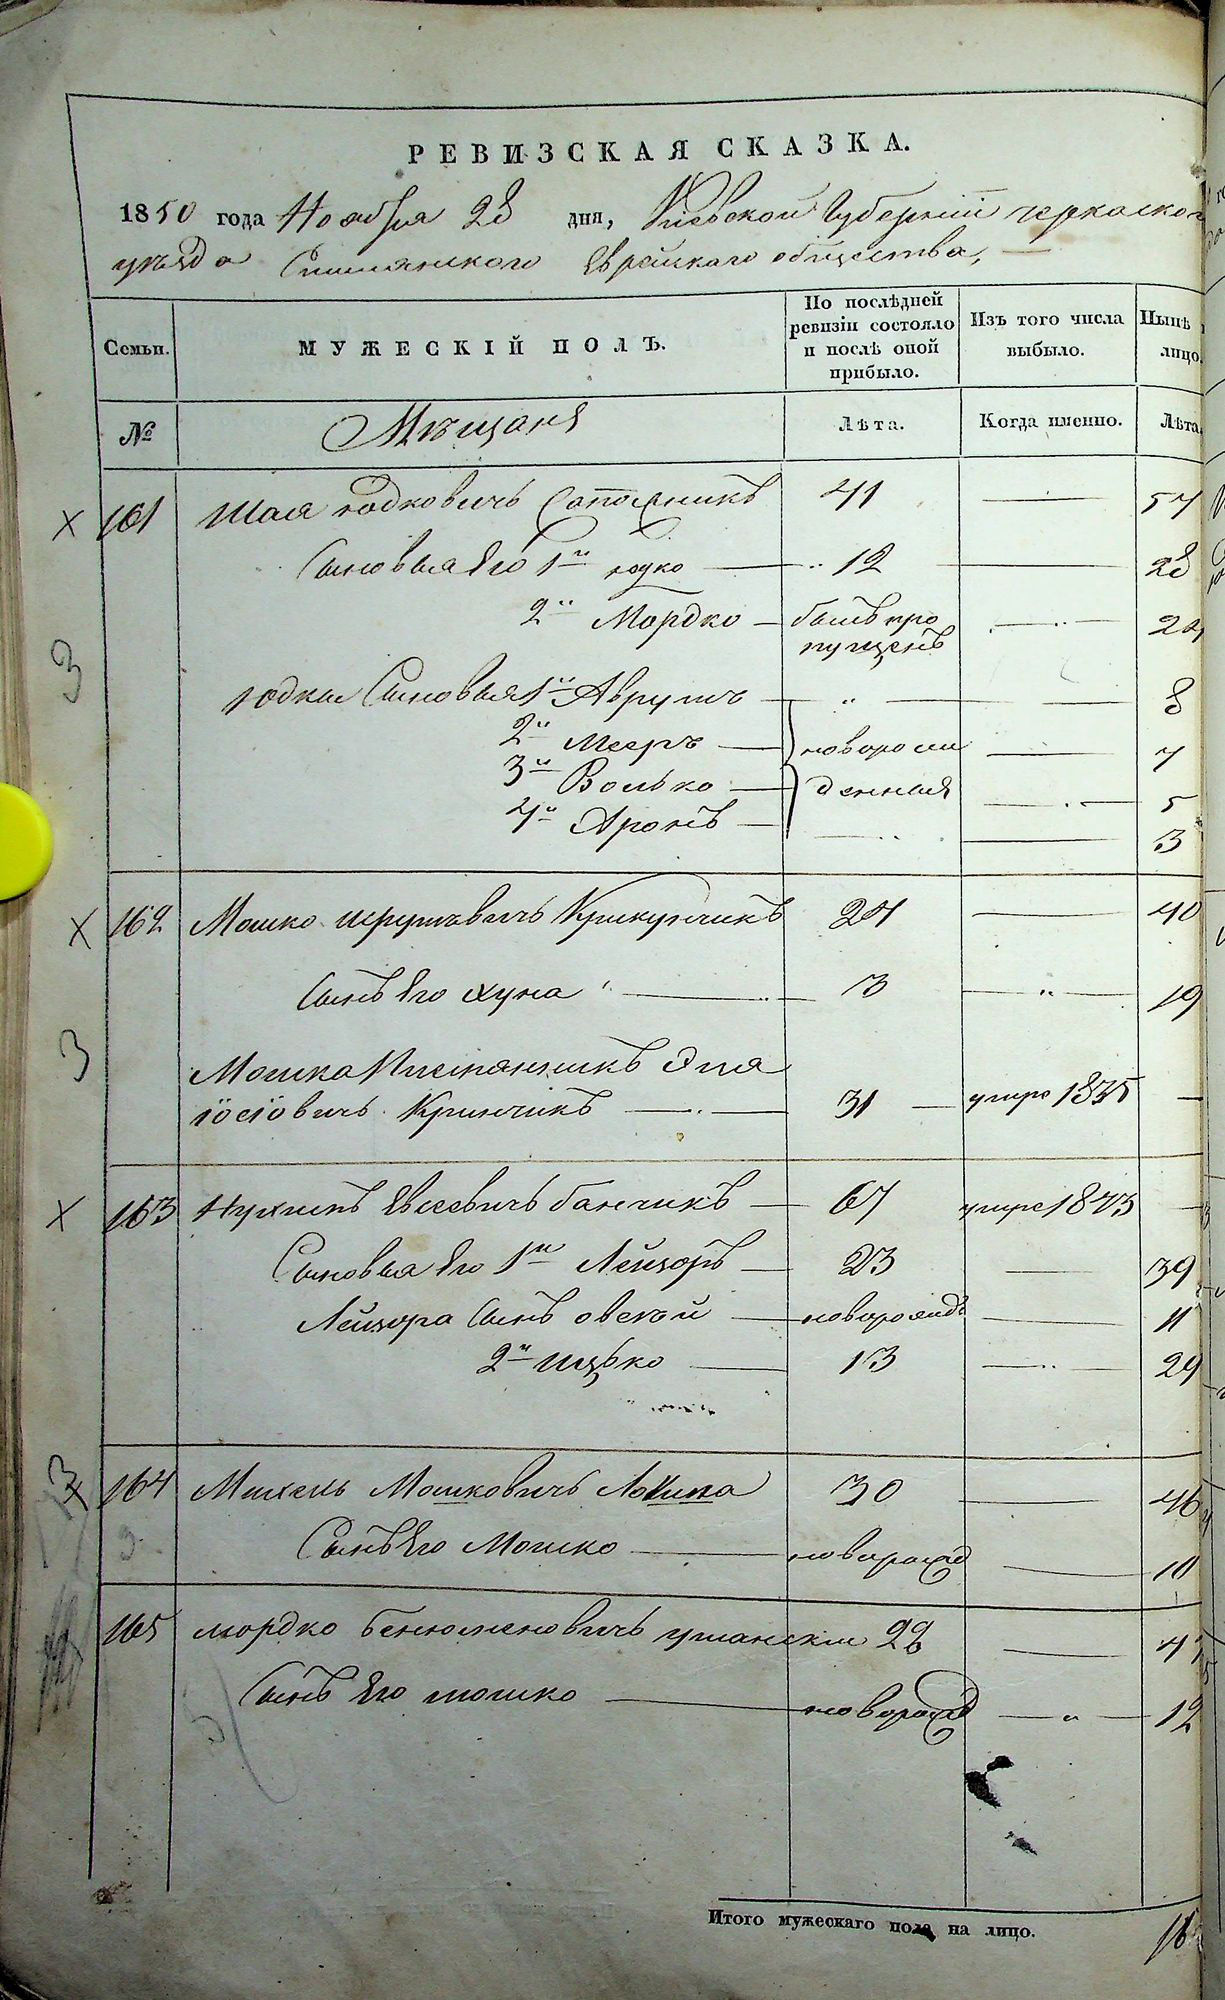 РЕВИЗСКАЯ СКАЗКА.
1850 года Ноября 28 дня, Киевской Губерніи черкаског
уезда Еврейскаго общества,
Семьи. МУЖЕСКІЙ ПОЛЪ. По послѣдней ревизіи состояло и послѣ оной прибыло. Изъ того числа выбыло. Нынѣ лицо.
№ Мѣщаня Лѣта. Когда именно. Лѣта
161 Шая юдковичь Сапожникъ 41 57
Сыновья Его 1й юдко 12 28
2й Мордко бывъ про 24
пущенъ
3
юдки Сыновья 1й Аврумъ 8
2й Мееръ новорож 7
3й Волько денныя 5
4й Аронъ 3
162 Мошко Крикунчикъ 24 40
Сынъ Его хуна 3 19
3
Мошка Племянникъ Эля
іосіовичь Кринчикъ 31 умре 1835
163 Нухимъ Евсеевичь банчикъ 67 умре 1843
Сыновья Его 1й Лейзоръ 23 39
Лейзора Сынъ овсѣй новорожд 11
2й ицько 13 29
3
164 Михель Мошковичь 30 46
Сынъ Его Мошко новорожд 10
165 мордко бенюменовичь умански 28 4
Сынъ Его мошко новорожд 12
Итого мужескаго пола на лицо. 16